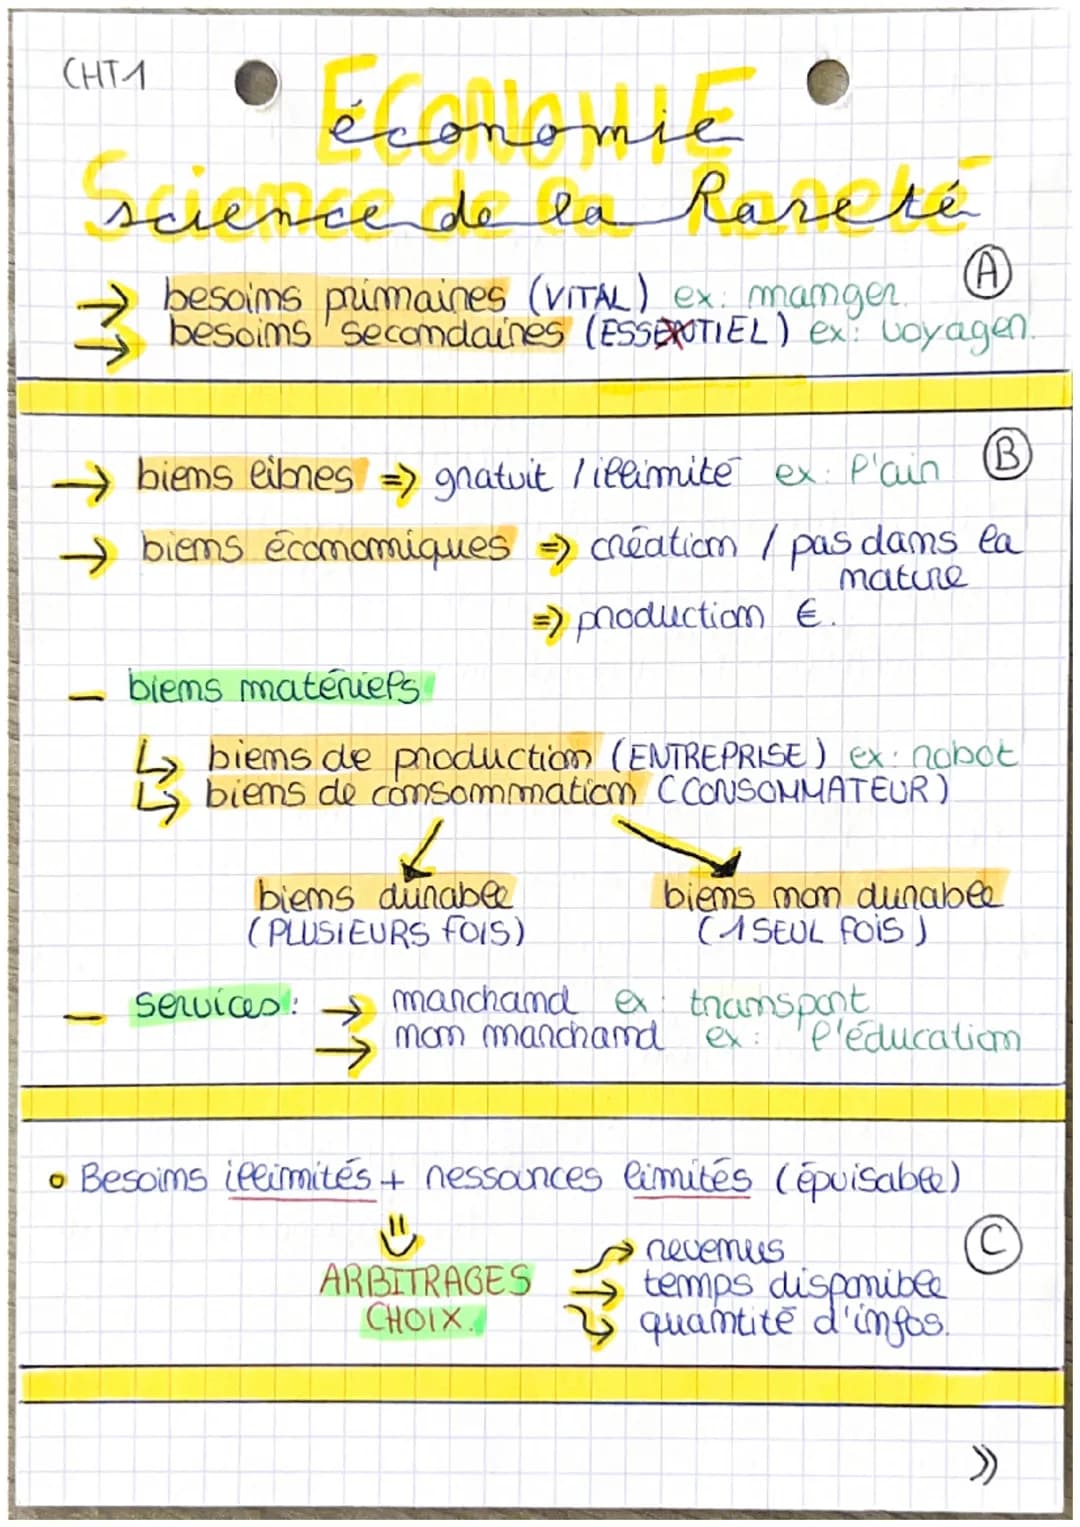 CHT1
ECONOMIE
économie
Science de la Rareté
science de la Rareté
A
→ besoins primaires (VITAL) ex: manger.
→ besoins secondaires (ESSENTIEL) ex: voyager.
B
→ biens libres => gratuit / illimité ex: l'air
→ biens économiques => création / pas dans la
nature
=> production €.
— biens matériels
↳ biens de production (ENTREPRISE) ex: robot
↳ biens de consommation (CONSOMMATEUR)
biens durable biens non durable
(PLUSIEURS FOIS) (1 SEUL FOIS)
— services: → marchand ex: transport
→ non marchand ex: l'éducation
• Besoins illimités + ressources limités (épuisable)
C
ARBITRAGES → revenus
CHOIX. → temps disponible
→ quantité d'infos.
>>